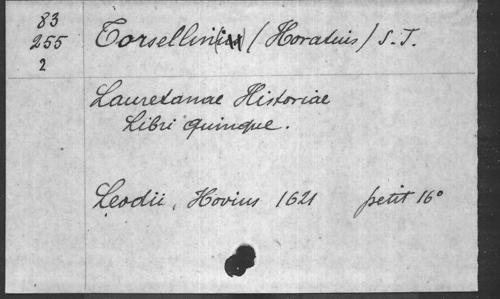 83
255
2
Torsellini(us) (Horatius) S.J.
Lauretanae Historiae
Libri quinque.
Leodii, Hovius 1621 petit 16°